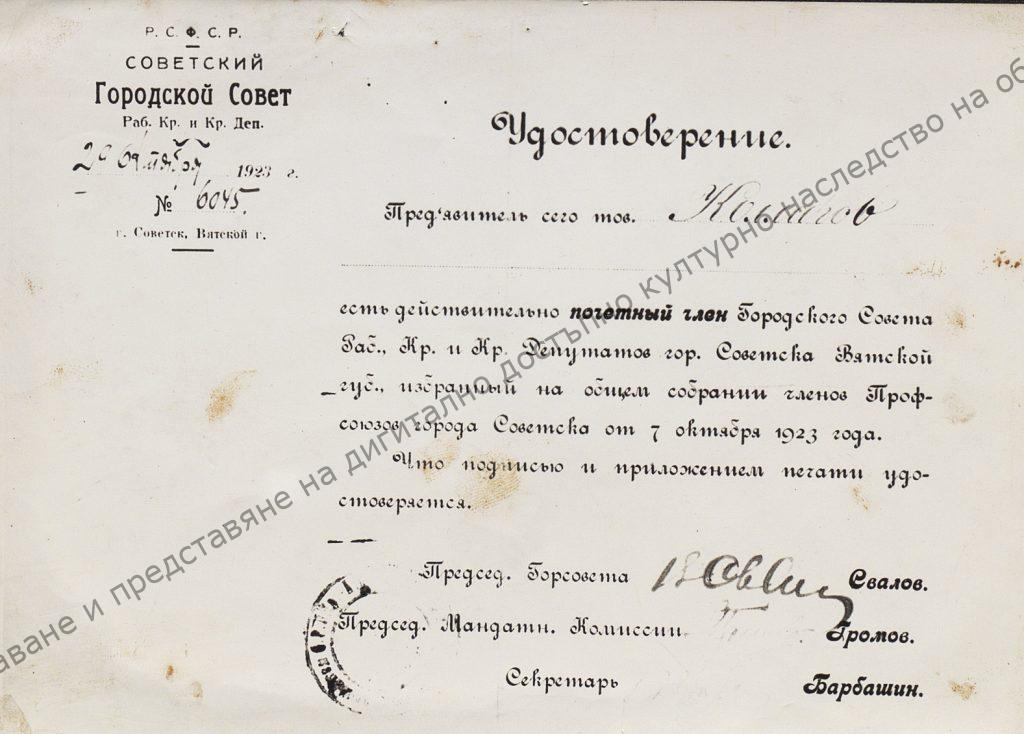 Р. С. Ф. С. Р.
СОВЕТСКИЙ
Городской Совет
Раб. Кр. и Кр. Деп.
29 октября 1923 г.
№ 6045.
г. Советск, Вятской г.
Удостоверение.
Пред'явитель сего тов.
есть действительно почетный член Городского Совета
Раб., Кр. и Кр. Депутатов гор. Советска Вятской
губ., избранный на общем собрании членов Проф-
союзов города Советска от 7 октября 1923 года.
Что подписью и приложением печати удо-
стоверяется.
Председ. Горсовета Свалов.
Председ. Мандатн. Комиссии Громов.
Секретарь Барбашин.
аване и представяне на дигитално достъпно културно наследство на об